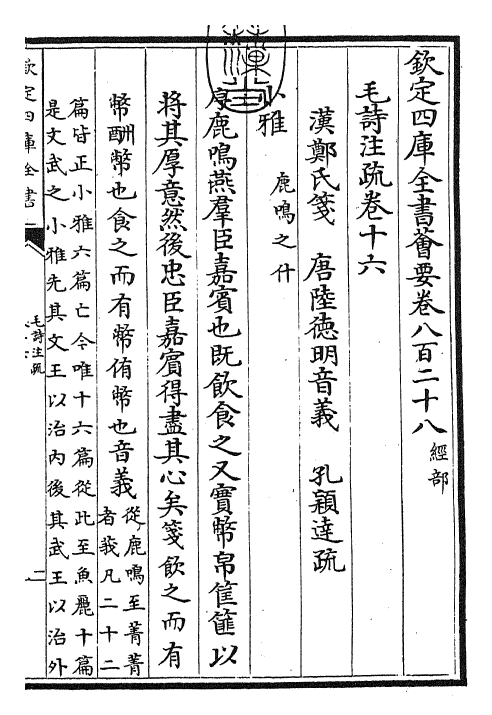 欽定四庫全書薈要卷八百二十八 經部
毛詩注疏卷十六
漢鄭氏箋 唐陸德明音義 孔穎達疏
小雅 鹿鳴之什
序鹿鳴燕羣臣嘉賓也既飲食之又實幣帛筐篚以
將其厚意然後忠臣嘉賓得盡其心矣箋飲之而有
幣酬幣也食之而有幣侑幣也音義從鹿鳴至菁菁
者莪凡二十二
篇皆正小雅六篇亡今唯十六篇從此至魚麗十篇
是文武之小雅先其文王以治内後其武王以治外
欽定四庫全書
毛詩注疏